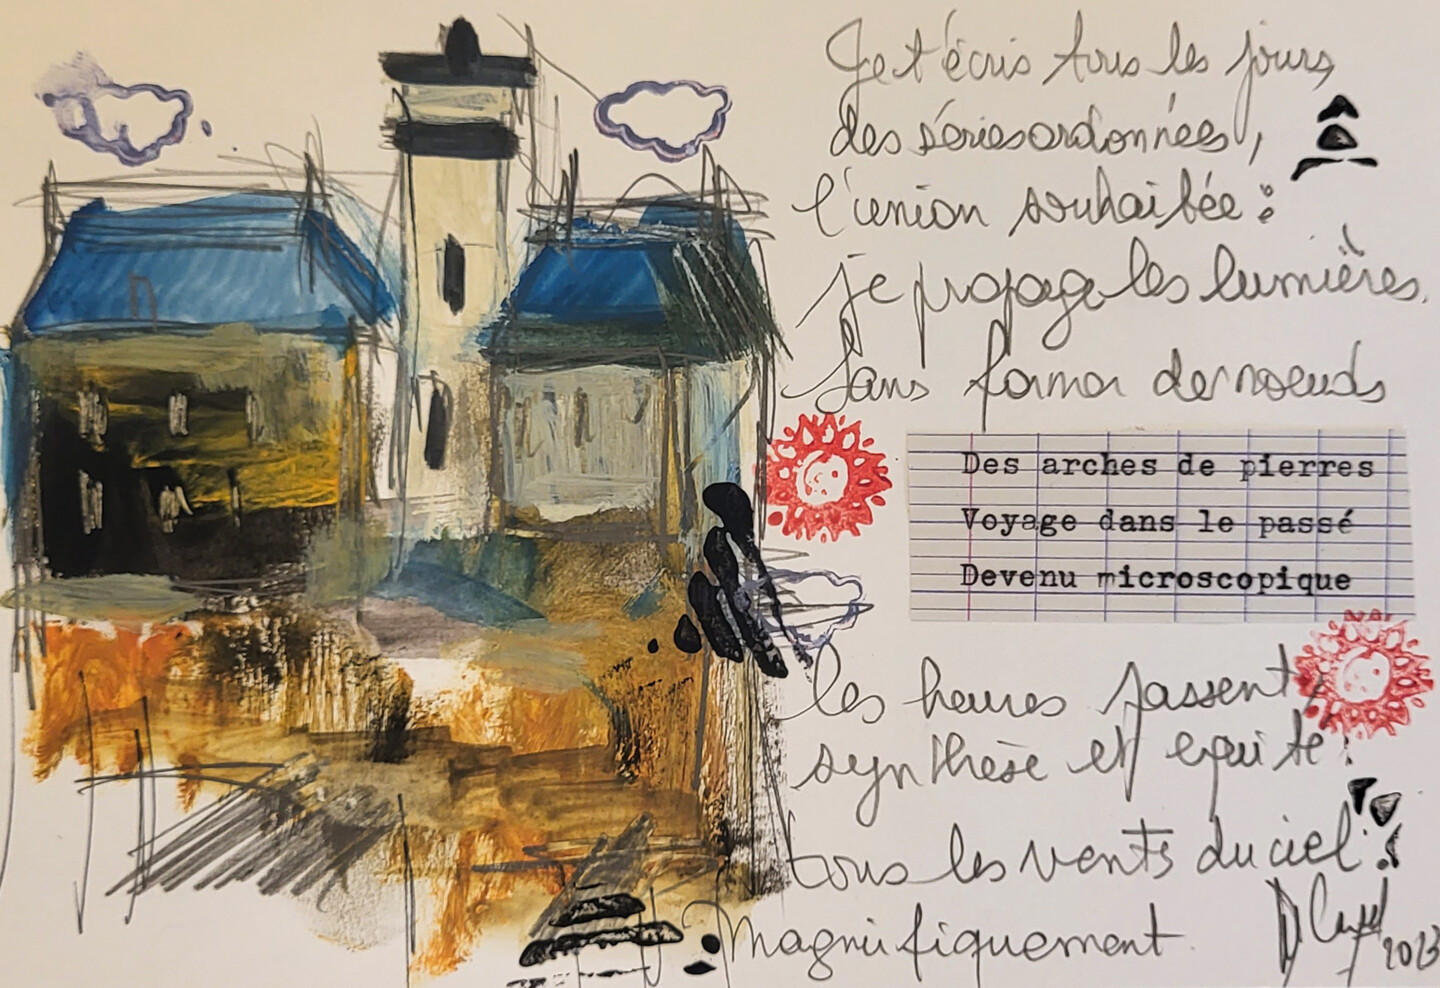 Je t'écris tous les jours,
des séries ordonnées,
l'union souhaitée :
je propage les lumières.
Sans former de noeuds
Des arches de pierres
Voyage dans le passé
Devenu microscopique
les heures passent,
synthèse et equité.
tous les vents du ciel.
Magnifiquement
2013